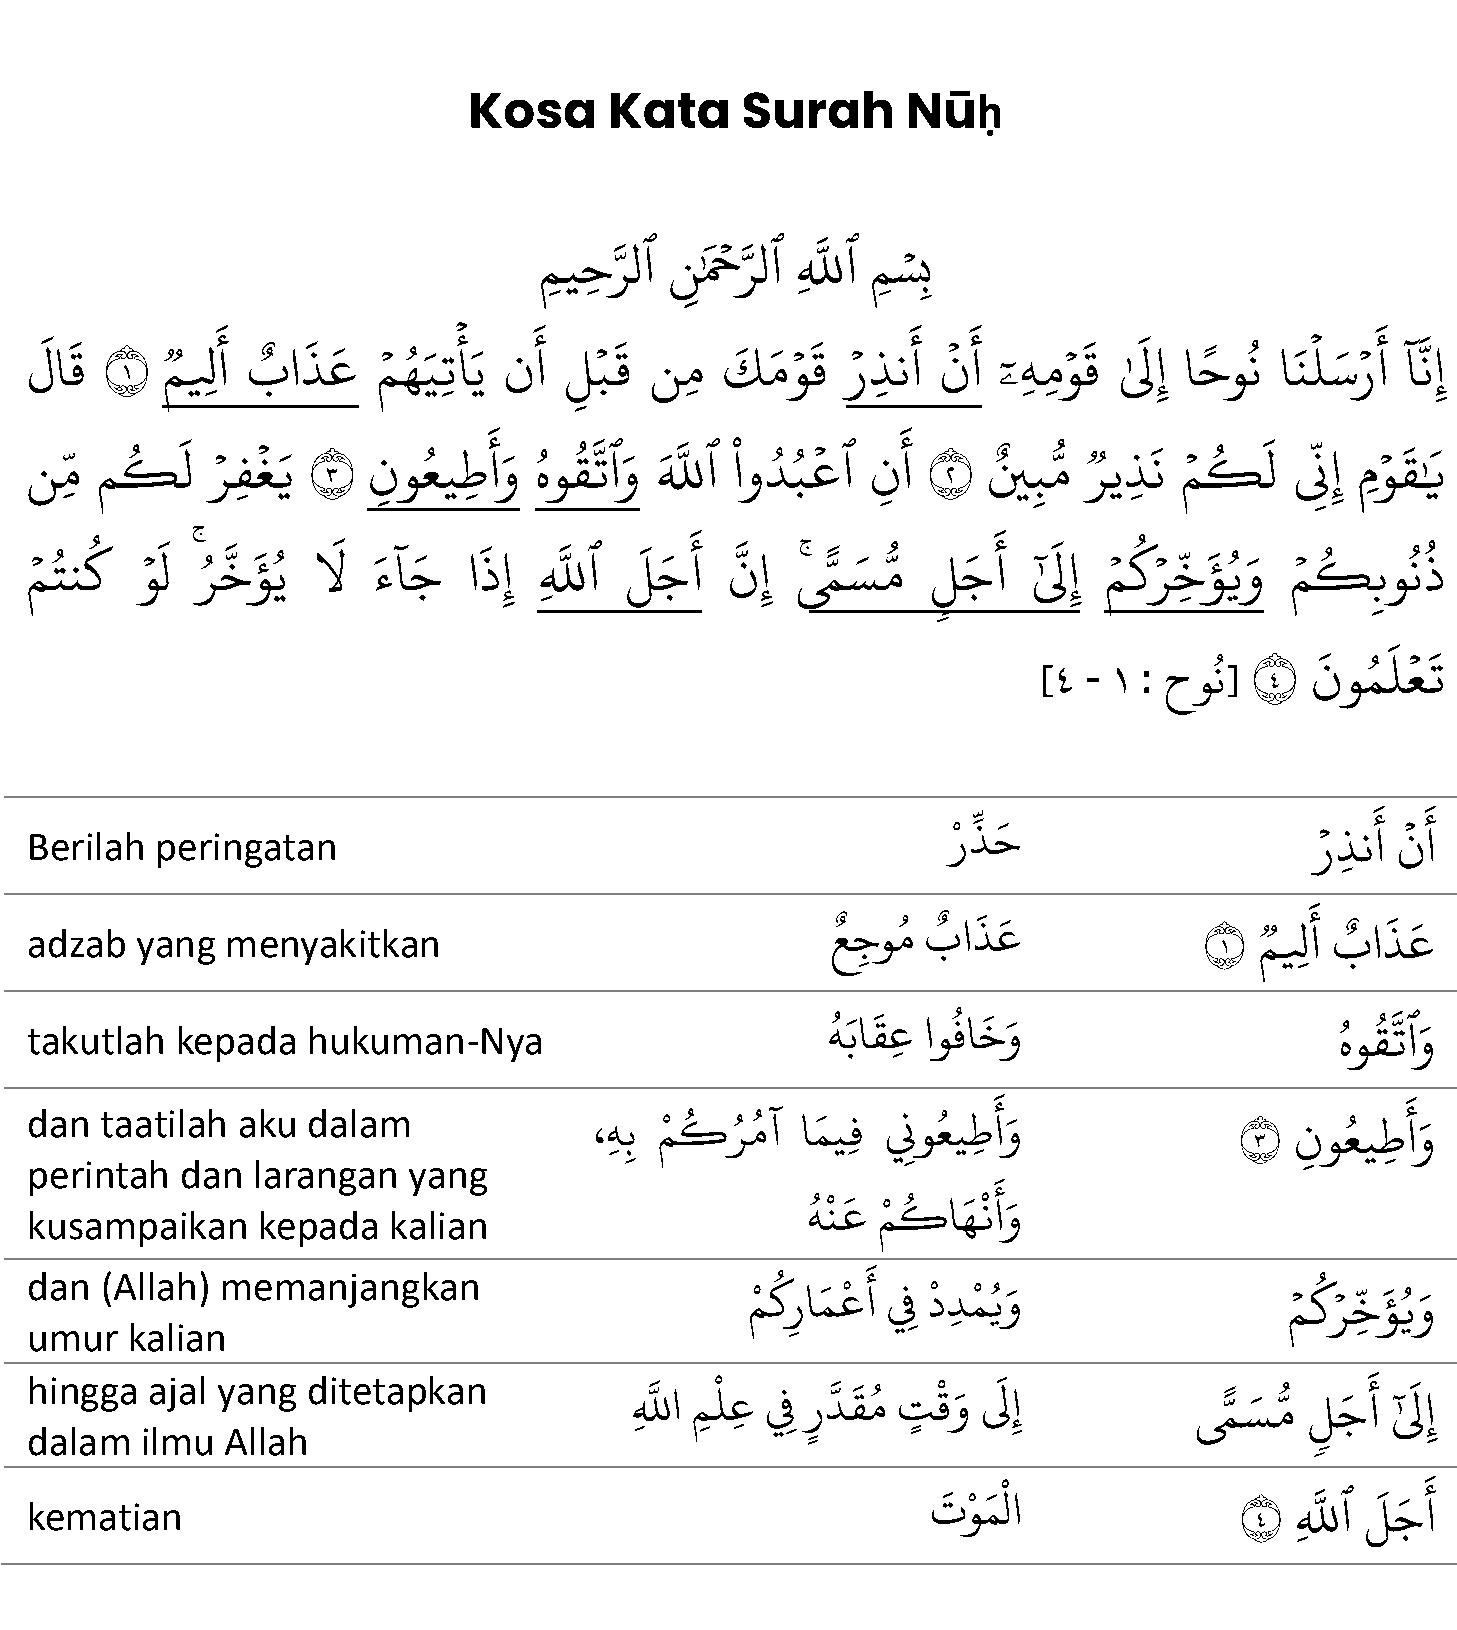 Kosa Kata Surah Nūḥ
بِسۡمِ ٱللَّهِ ٱلرَّحۡمَٰنِ ٱلرَّحِيمِ
إِنَّآ أَرۡسَلۡنَا نُوحًا إِلَىٰ قَوۡمِهِۦٓ أَنۡ أَنذِرۡ قَوۡمَكَ مِن قَبۡلِ أَن يَأۡتِيَهُمۡ عَذَابٌ أَلِيمٞ ١ قَالَ
يَٰقَوۡمِ إِنِّي لَكُمۡ نَذِيرٞ مُّبِينٌ ٢ أَنِ ٱعۡبُدُواْ ٱللَّهَ وَٱتَّقُوهُ وَأَطِيعُونِ ٣ يَغۡفِرۡ لَكُم مِّن
ذُنُوبِكُمۡ وَيُؤَخِّرۡكُمۡ إِلَىٰٓ أَجَلٖ مُّسَمًّىۚ إِنَّ أَجَلَ ٱللَّهِ إِذَا جَآءَ لَا يُؤَخَّرُۚ لَوۡ كُنتُمۡ
تَعۡلَمُونَ ٤ [نُوح : ١ - ٤]
أَنۡ أَنذِرۡ حَذِّرْ Berilah peringatan
عَذَابٌ أَلِيمٞ ١ عَذَابٌ مُوجِعٌ adzab yang menyakitkan
وَٱتَّقُوهُ وَخَافُوا عِقَابَهُ takutlah kepada hukuman-Nya
وَأَطِيعُونِ ٣ وَأَطِيعُونِي فِيمَا آمُرُكُمْ بِهِ، dan taatilah aku dalam
perintah dan larangan yang
وَأَنْهَاكُمْ عَنْهُ kusampaikan kepada kalian
وَيُؤَخِّرۡكُمۡ وَيُمْدِدْ فِي أَعْمَارِكُمْ dan (Allah) memanjangkan
umur kalian
إِلَىٰٓ أَجَلٖ مُّسَمًّى إِلَى وَقْتٍ مُقَدَّرٍ فِي عِلْمِ اللَّهِ hingga ajal yang ditetapkan
dalam ilmu Allah
أَجَلَ ٱللَّهِ ٤ الْمَوْتَ kematian